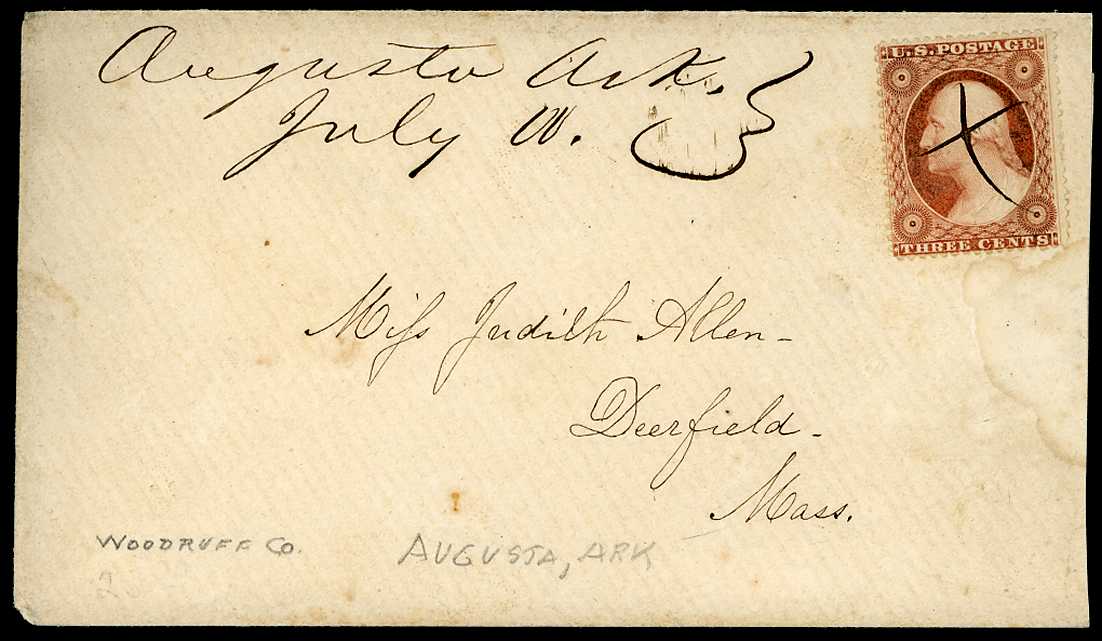 Augusta Ark.
July
U.S. POSTAGE
THREE CENTS
Miss Judith Allen -
Deerfield -
Mass.
WOODRUFF CO.
AUGUSTA, ARK